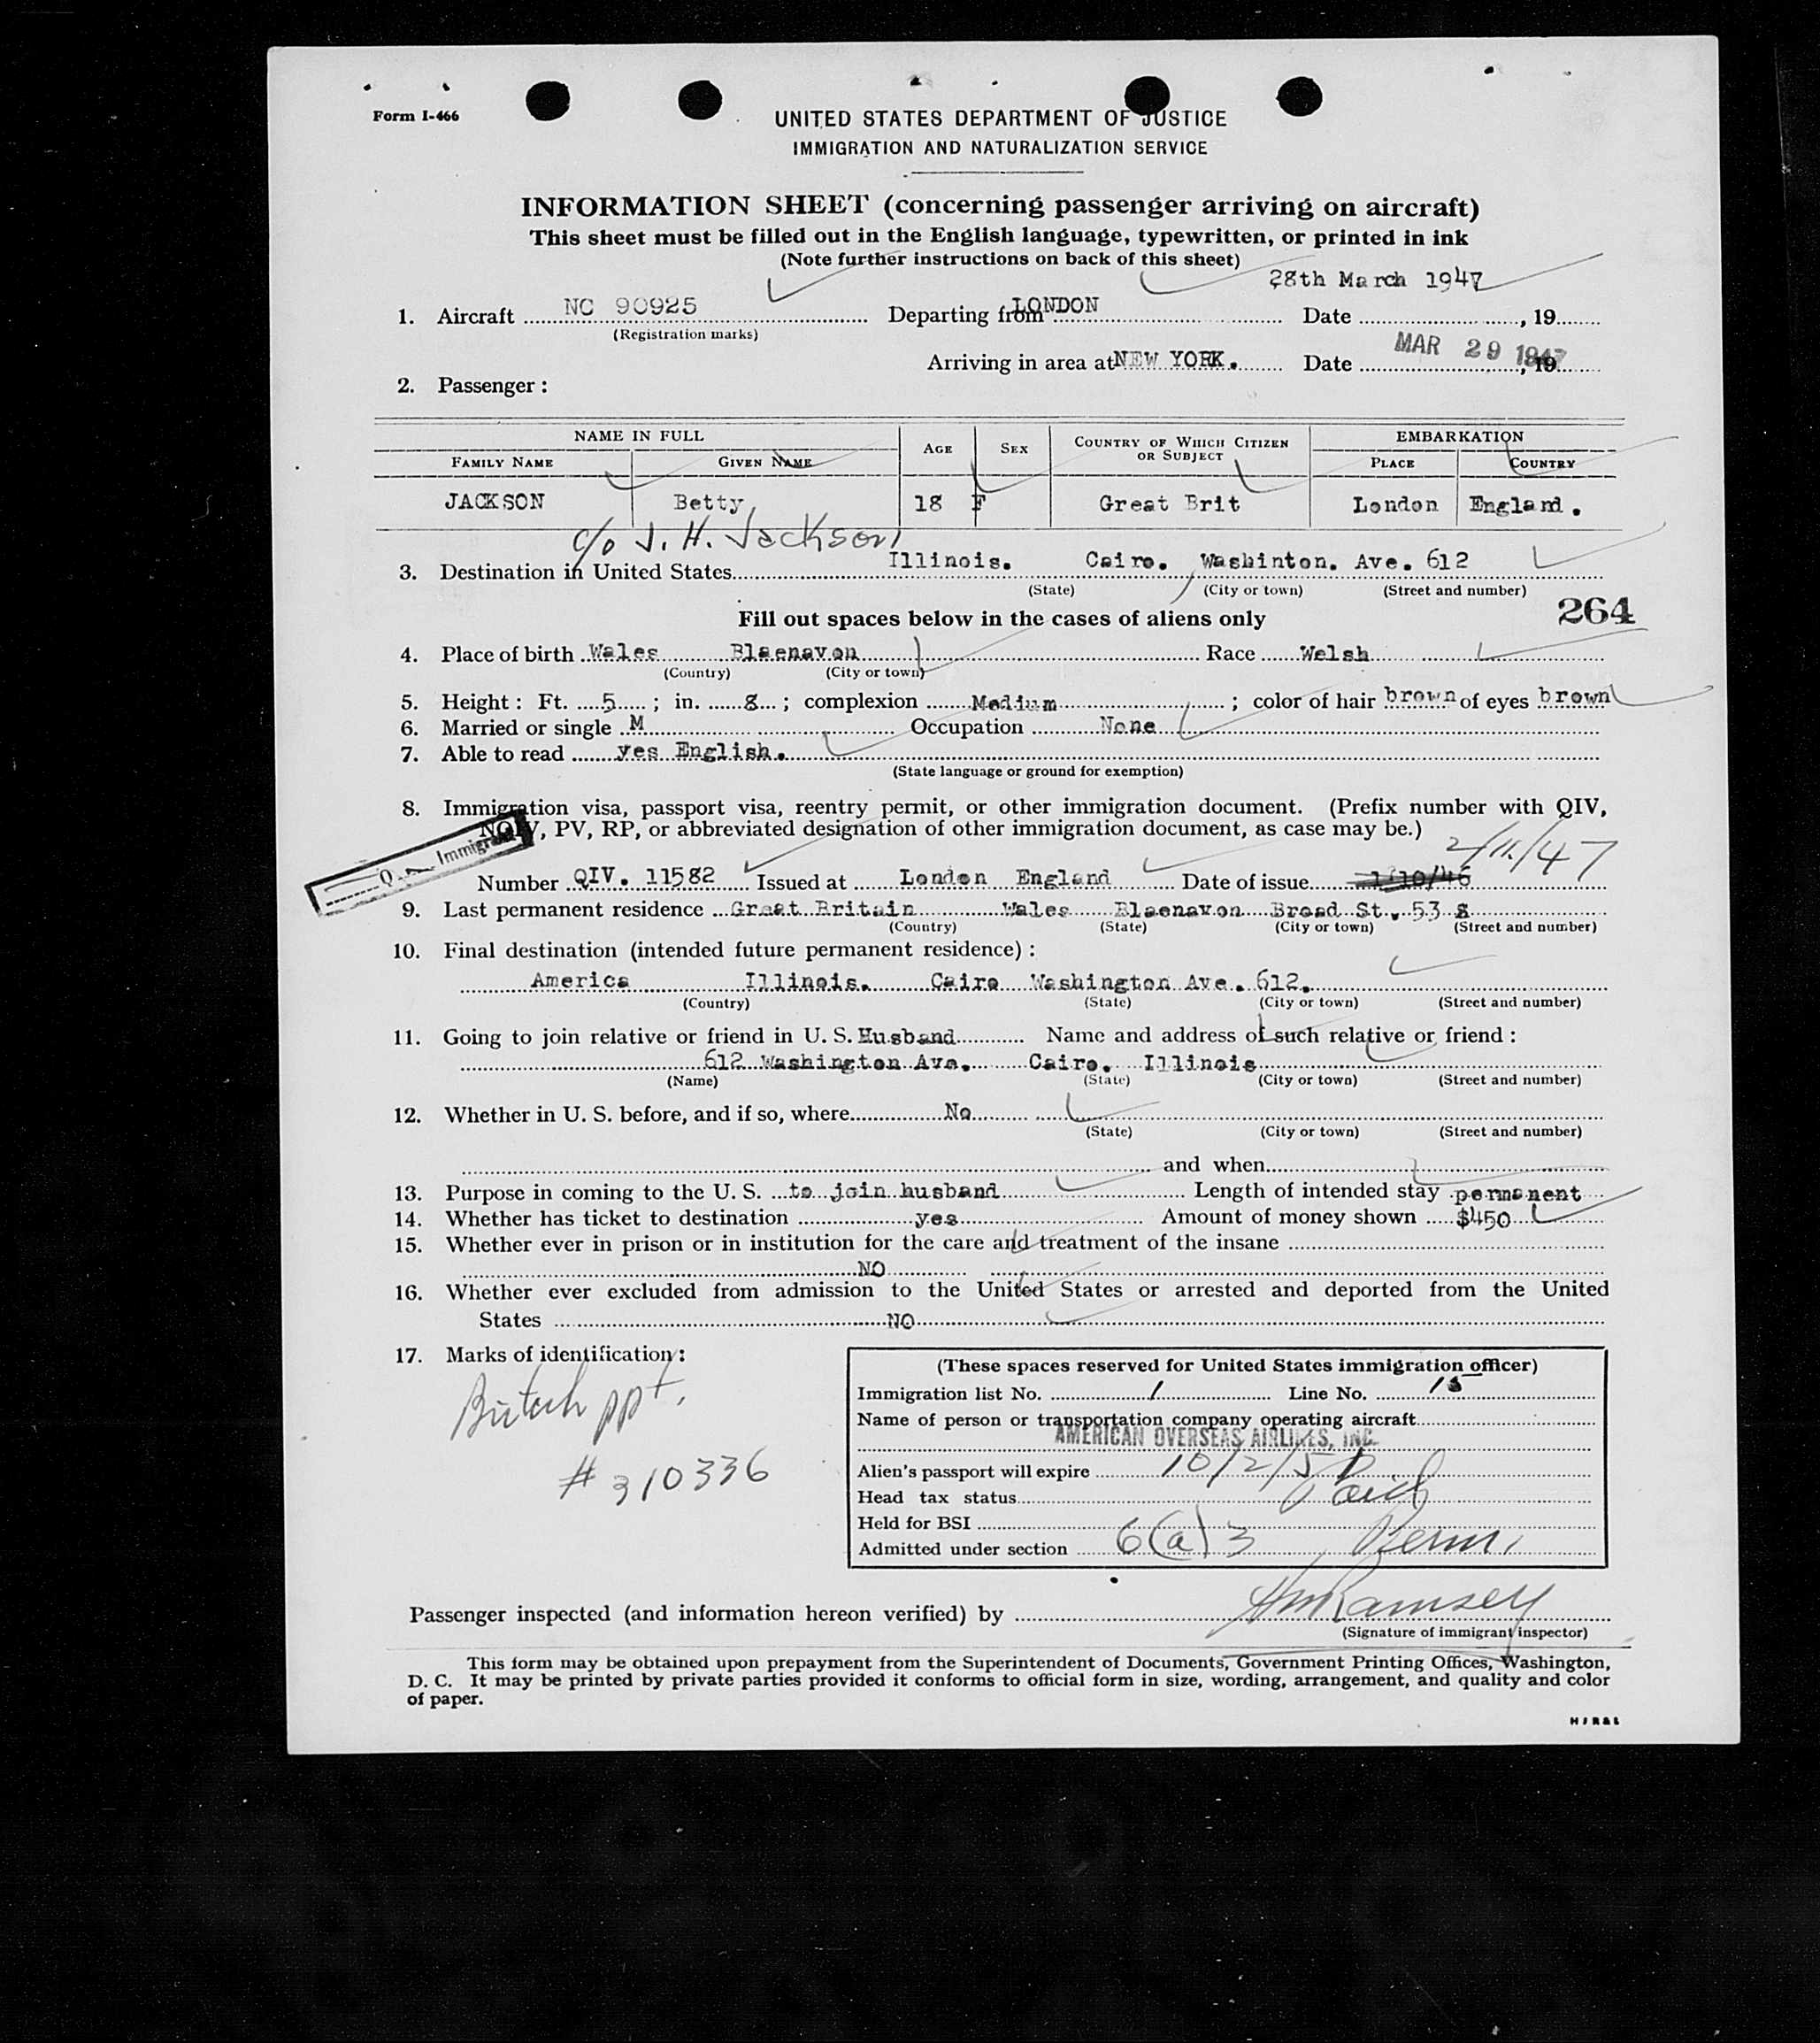 Form I-466
UNITED STATES DEPARTMENT OF JUSTICE
IMMIGRATION AND NATURALIZATION SERVICE
INFORMATION SHEET (concerning passenger arriving on aircraft)
This sheet must be filled out in the English language, typewritten, or printed in ink
(Note further instructions on back of this sheet)
28th March 1947
1. Aircraft NC 90925 Departing from LONDON Date , 19
(Registration marks)
Arriving in area at NEW YORK. Date MAR 29 1947 , 19
2. Passenger :
NAME IN FULL AGE SEX COUNTRY OF WHICH CITIZEN OR SUBJECT EMBARKATION
FAMILY NAME GIVEN NAME PLACE COUNTRY
JACKSON Betty 18 F Great Brit London England.
c/o J. H. Jackson
3. Destination in United States Illinois. Cairo. Washinton. Ave. 612
(State) (City or town) (Street and number)
Fill out spaces below in the cases of aliens only 264
4. Place of birth Wales Blaenavon Race Welsh
(Country) (City or town)
5. Height : Ft. 5 ; in. 8 ; complexion Medium ; color of hair brown of eyes brown
6. Married or single M Occupation None
7. Able to read yes English.
(State language or ground for exemption)
8. Immigration visa, passport visa, reentry permit, or other immigration document. (Prefix number with QIV,
NQIV, PV, RP, or abbreviated designation of other immigration document, as case may be.)
Q Immigrant
2/11/47
Number QIV. 11582 Issued at London England Date of issue 1/10/46
9. Last permanent residence Great Britain Wales Blaenavon Broad St. 53
(Country) (State) (City or town) (Street and number)
10. Final destination (intended future permanent residence) :
America Illinois. Cairo Washington Ave. 612.
(Country) (State) (City or town) (Street and number)
11. Going to join relative or friend in U. S. Husband Name and address of such relative or friend :
612 Washington Ave. Cairo. Illinois
(Name) (State) (City or town) (Street and number)
12. Whether in U. S. before, and if so, where No
(State) (City or town) (Street and number)
and when
13. Purpose in coming to the U. S. to join husband Length of intended stay permanent
14. Whether has ticket to destination yes Amount of money shown $450
15. Whether ever in prison or in institution for the care and treatment of the insane
NO
16. Whether ever excluded from admission to the United States or arrested and deported from the United
States NO
17. Marks of identification :
British ppt.
# 310336
(These spaces reserved for United States immigration officer)
Immigration list No. 1 Line No. 15
Name of person or transportation company operating aircraft
AMERICAN OVERSEAS AIRLINES, INC.
Alien's passport will expire 10/2/51
Head tax status Paid
Held for BSI
Admitted under section 6(a)3 Perm.
Passenger inspected (and information hereon verified) by HmRamsey
(Signature of immigrant inspector)
This form may be obtained upon prepayment from the Superintendent of Documents, Government Printing Offices, Washington,
D. C. It may be printed by private parties provided it conforms to official form in size, wording, arrangement, and quality and color
of paper.